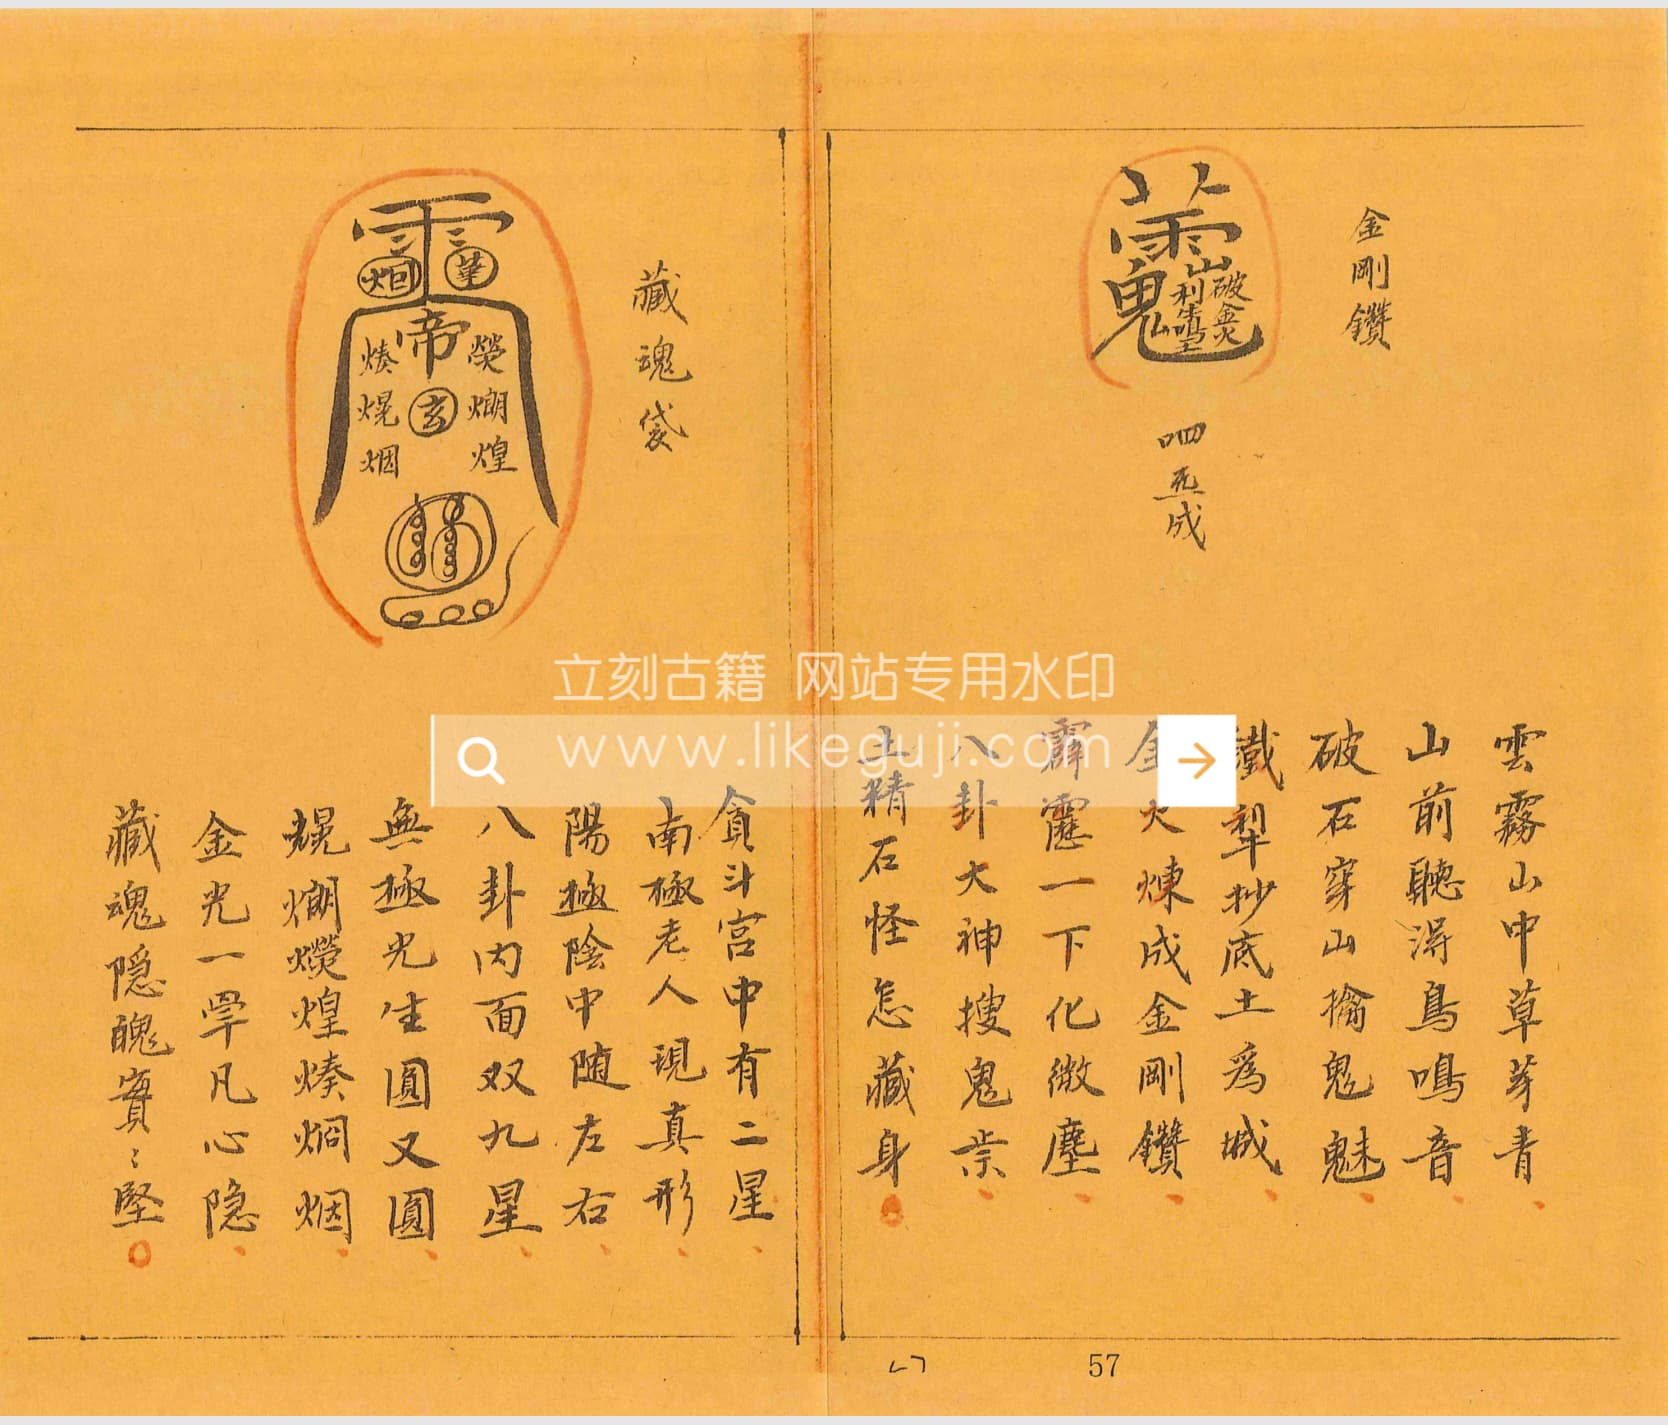 金剛鑽
破金火
利牛鳴土
山
呬炁成
雲霧山中草芽青
山前聽得鳥鳴音
破石穿山擒鬼魅
鐵犁抄底土為城
金火煉成金剛鑽
霹靂一下化微塵
八卦大神搜鬼祟
土精石怪怎藏身
57
藏魂袋
炟 華
帝
熒
煌
玄
熀烟
貪斗宮中有二星
南極老人現真形
陽極陰中随左右
八卦内面双九星
無極光生圓又圓
金光一罩凡心隐
藏魂隐醜實〻堅
立刻古籍 网站专用水印
www.likeguji.com